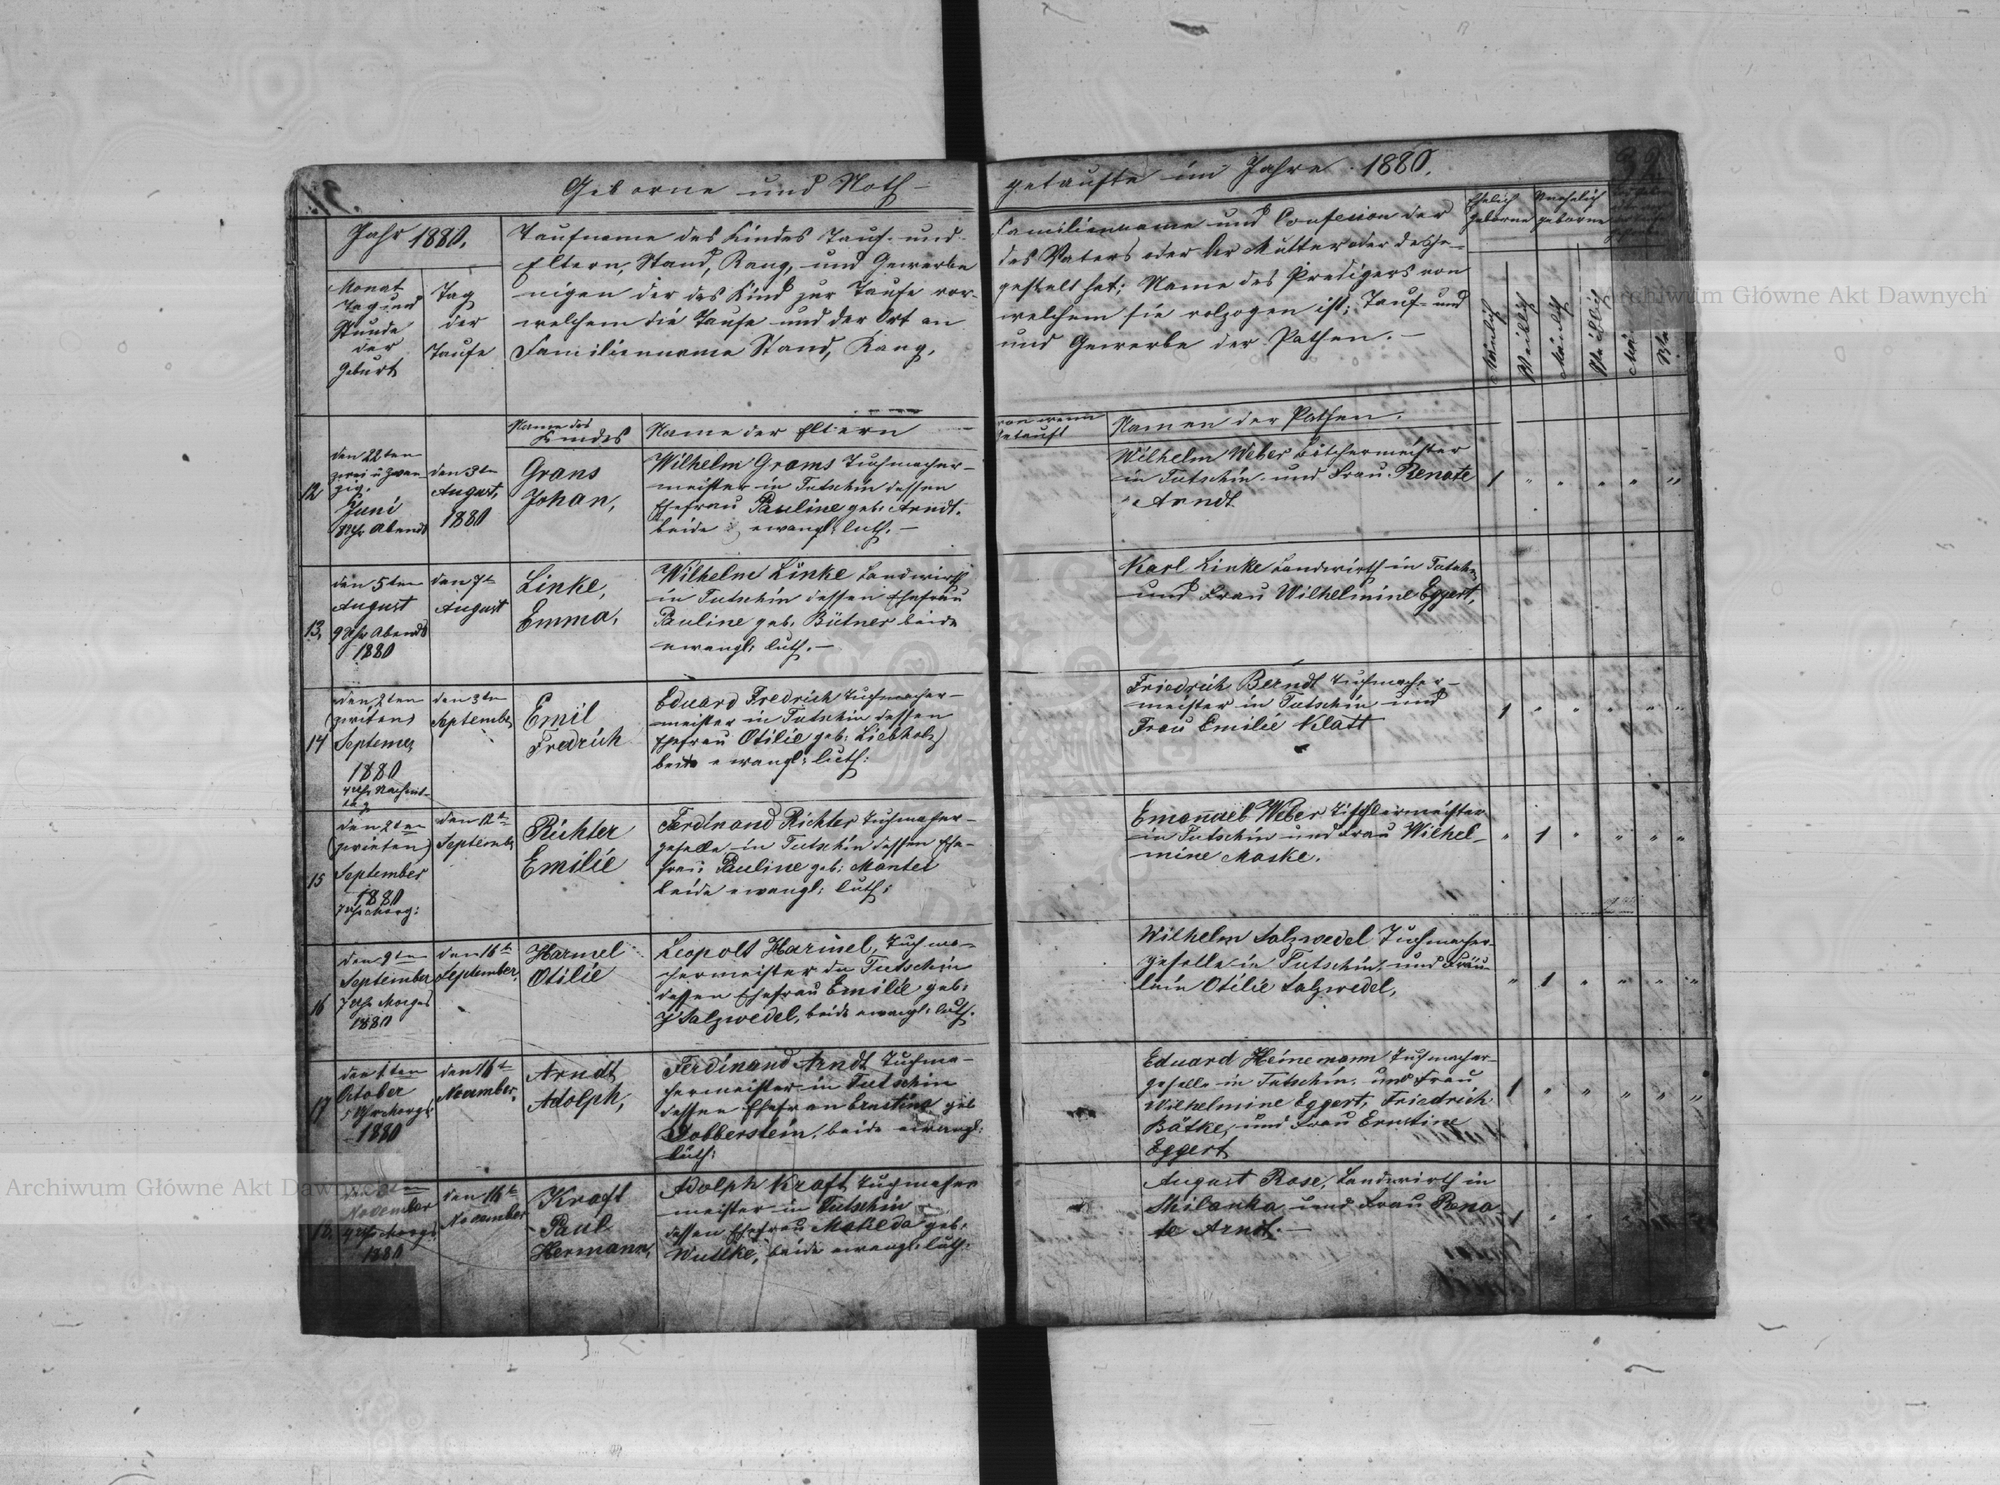 Geborne und Noth-
getaufte im Jahre 1880.
32
Jahr 1880.
Monat
Tag und
Stunde
der
Geburt
Tag
der
Taufe
Taufname des Kindes Tauf- und
Eltern, Stand, Rang, und Gewerbe
nigen der das Kind zur Taufe vor-
welchem die Taufe und der Ort an
Familienname Stand, Rang,
Familienname und Confesion der
des Vaters oder der Mutter oder desje-
gestelt hat; Name des Predigers von
welchem sie volzogen ist; Tauf- und
und Gewerbe der Pathen. -
Ehelich
geborne
Unehelich
geborne
Mänlich
Weiblich
Mänlich
Weiblich
Name des
Kindes
Name der Eltern
von wem
getauft
Namen der Pathen.
12
den 22ten
zwei u. zwan-
zig.
Juni
8 Uhr Abends
den 3ten
August,
1880
Grans
Johan,
Wilhelm Grams Tuchmacher-
meister in Tutschin dessen
Ehefrau Pauline geb: Arndt.
beide ewangl: luth. -
Wilhelm Weber Bötchermeister
in Tutschin und Frau Renate
Arndt
1 " " " " "
13,
den 5ten
August
9 Uhr Abends
1880
den 7ten
August
Linke,
Emma,
Wilhelm Linke Landwirth
in Tutschin dessen Ehefrau
Pauline geb: Bütner beide
ewangl: luth. -
Karl Linke Landwirth in Tutschin
und Frau Wilhelmine Eggert,
14
den 2ten
(zwiten)
Septemer
1880
4 Uhr Nachmit-
tag
den 3ten
September
Emil
Fredrich
Eduard Fredrich Tuchmacher-
meister in Tutschin dessen
Ehefrau Otilie geb: Liebholz
beide ewangl: luth:
Friedrich Berndt Tuchmacher-
meister in Tutschin und
Frau Emilie Klatt
1 " " " " "
15
den 2ten
(zwieten)
September
1880
7 Uhr Morg:
den 12ten
September
Richter
Emilie
Ferdinand Richter Tuchmacher-
geselle in Tutschin dessen Ehe-
frau Pauline geb: Mantei
beide ewangl: luth:
Emanuel Weber Tischlermeister
in Tutschin und Frau Wilhel-
mine Maske.
" 1 " " " "
16
den 9ten
September
7 Uhr Morgs
1880
den 16ten
September,
Harmel
Otilie
Leopolt Harmel, Tuchma-
chermeister in Tutschin
dessen Ehefrau Emilie geb:
Salzwedel, beide ewangl: luth.
Wilhelm Salzwedel Tuchmacher-
geselle in Tutschin, und Fräu-
lein Otilie Salzwedel,
" 1 " " " "
17
den 1ten
October
5 Uhr Morgs
1880
den 16ten
November,
Arndt
Adolph,
Ferdinand Arndt Tuchma-
chermeister in Tutschin
dessen Ehefrau Ernstine geb
Dobberstein, beide ewangl:
luth:
Eduard Heinemann Tuchmacher-
geselle in Tutschin, und Frau
Wilhelmine Eggert, Friedrich
Bätke, und Frau Ernstine
Eggert
1 " " " " "
18.
November
1880
den 16ten
November
Kraft
Paul
Hermann,
Adolph Kraft Tuchmacher
meister in Tutschin
dessen Ehefrau Matilda geb:
Wutke, beide ewangl: luth:
August Rose, Landwirth in
und Frau Rena-
te Arndt. -
Archiwum Główne Akt Dawnych
Archiwum Główne Akt Dawnych